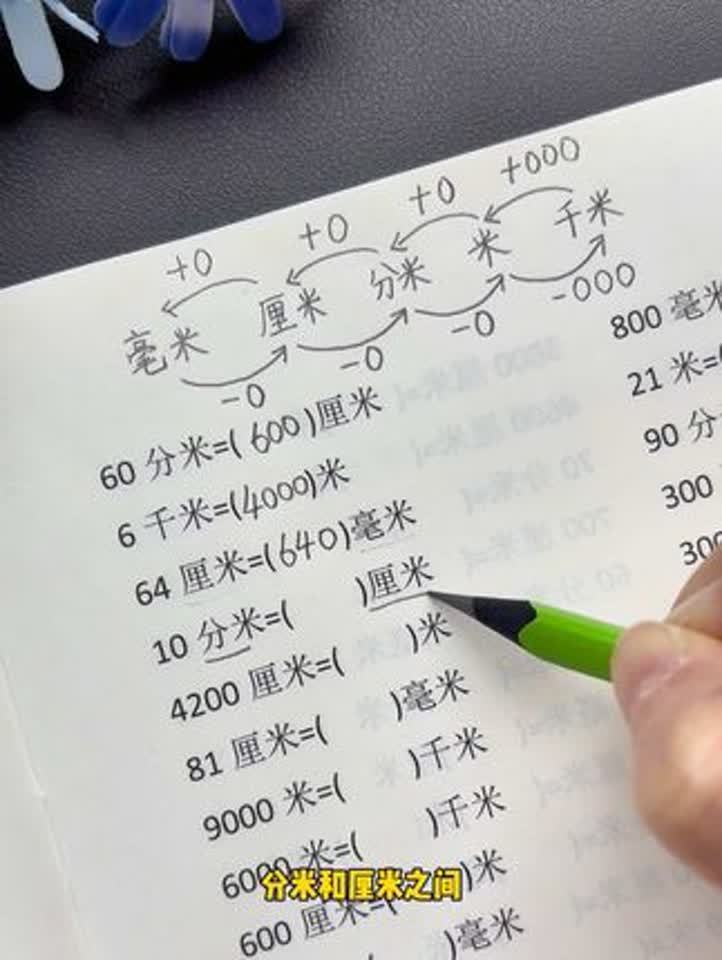 +0 +0 +0 +000
毫米 厘米 分米 米 千米
-0 -0 -0 -000
60 分米=(600)厘米
6 千米=(4000)米
64 厘米=(640)毫米
10 分米=( )厘米
4200 厘米=( )米
81 厘米=( )毫米
9000 米=( )千米
6000 米=( )千米
600 厘米=( )米
)毫米
800 毫米
21 米=
90 分
300
300
分米和厘米之间